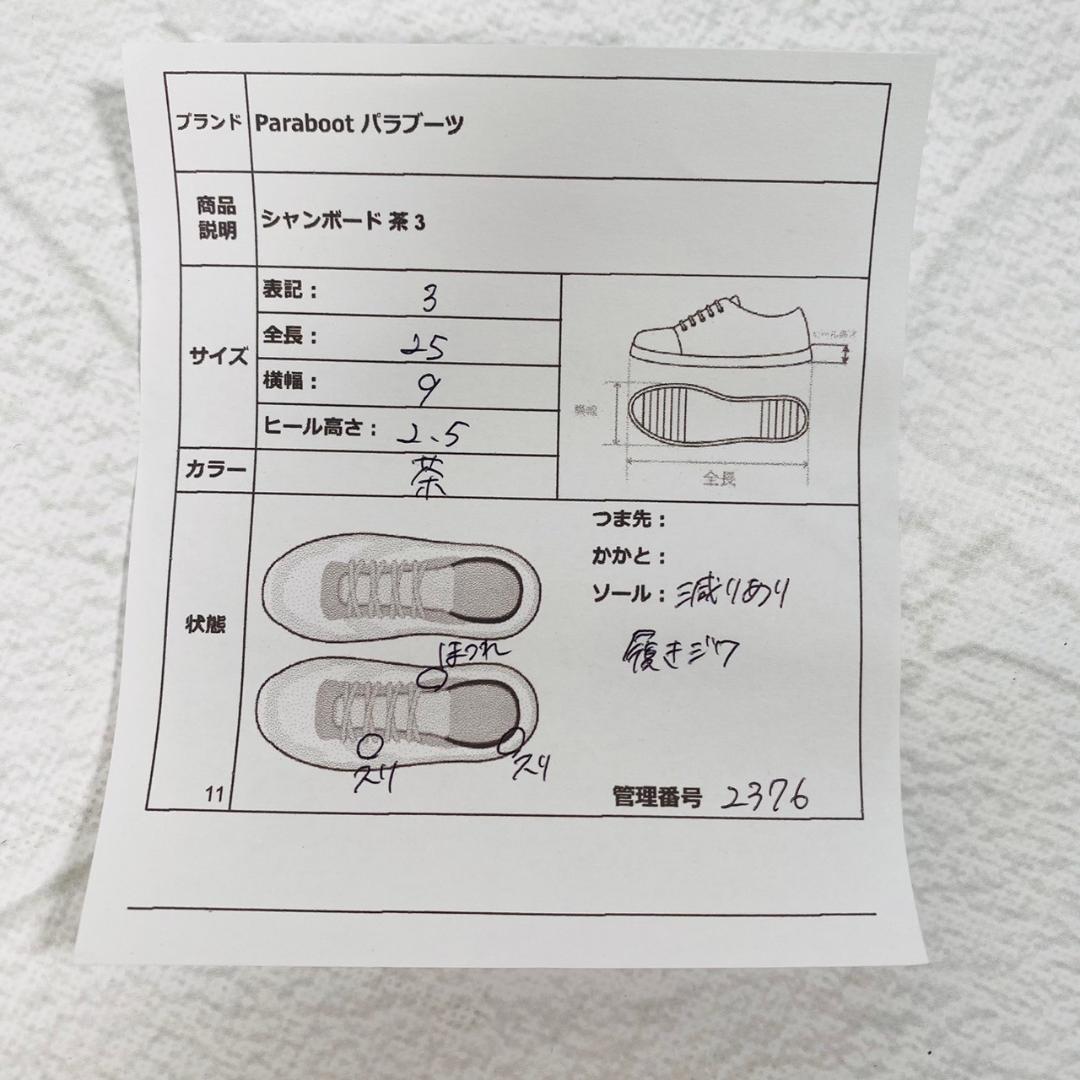 ブランド Paraboot パラブーツ
商品
説明
シャンボード 茶 3
サイズ
表記： 3
全長： 25
横幅： 9
ヒール高さ： 2.5
カラー 茶
ヒール高さ
横幅
全長
状態
つま先：
かかと：
ソール： 減りあり
履きジワ
ほつれ
スリ
スリ
11
管理番号 2376